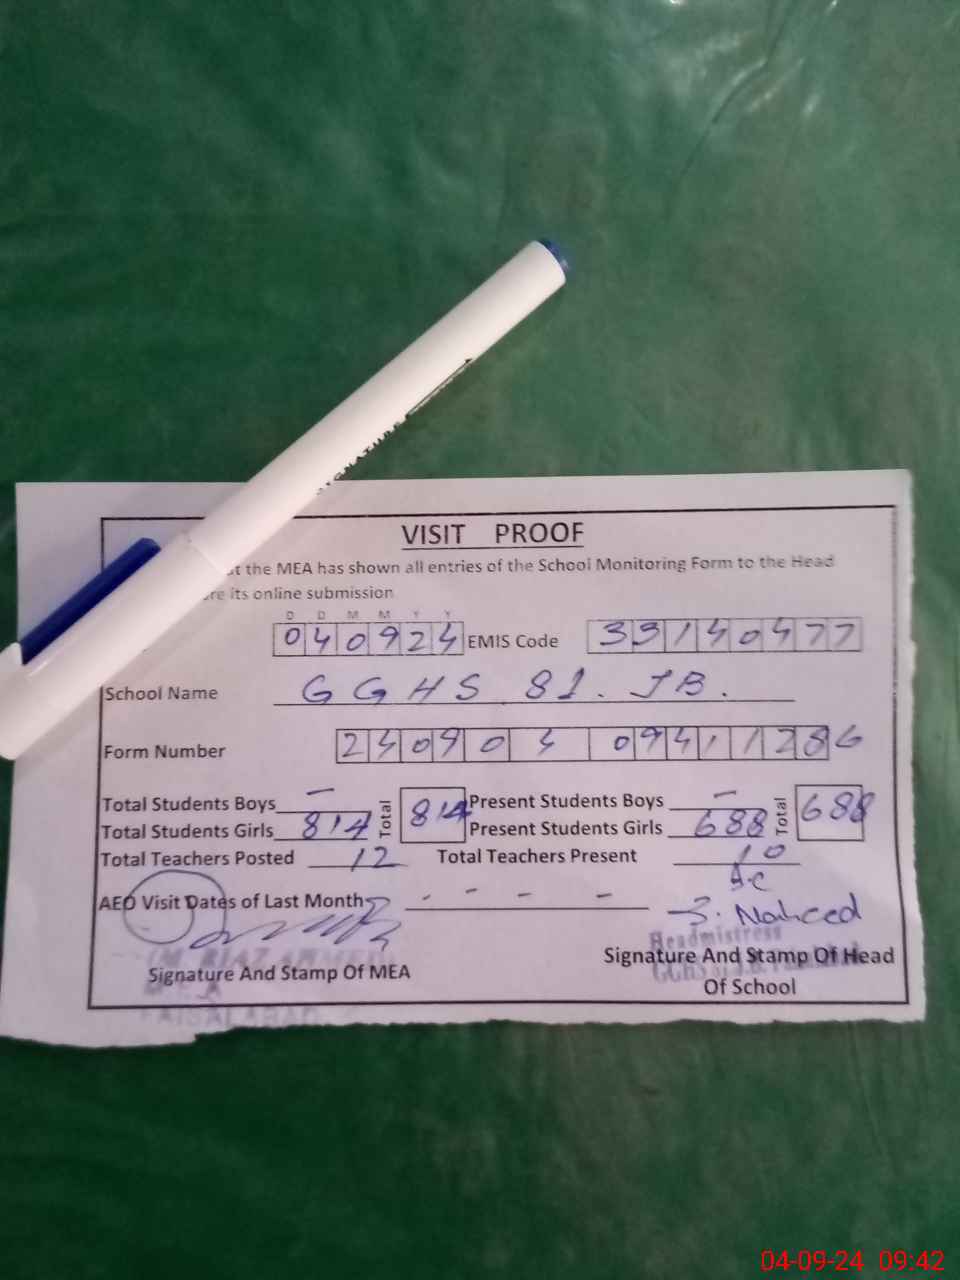 SIGNATURE
VISIT PROOF
the MEA has shown all entries of the School Monitoring Form to the Head
its online submission
D D M M Y Y
040924 EMIS Code 33140477
School Name GGHS 81. JB.
Form Number 240904 094111286
Total Students Boys - Total 814 Present Students Boys - Total 688
Total Students Girls 814 Present Students Girls 688
Total Teachers Posted 12 Total Teachers Present 10
AEO Visit Dates of Last Month - - - -
S. Naheed
Headmistress
Signature And Stamp Of MEA Signature And Stamp Of Head
Of School
FAISALABAD
04-09-24 09:42